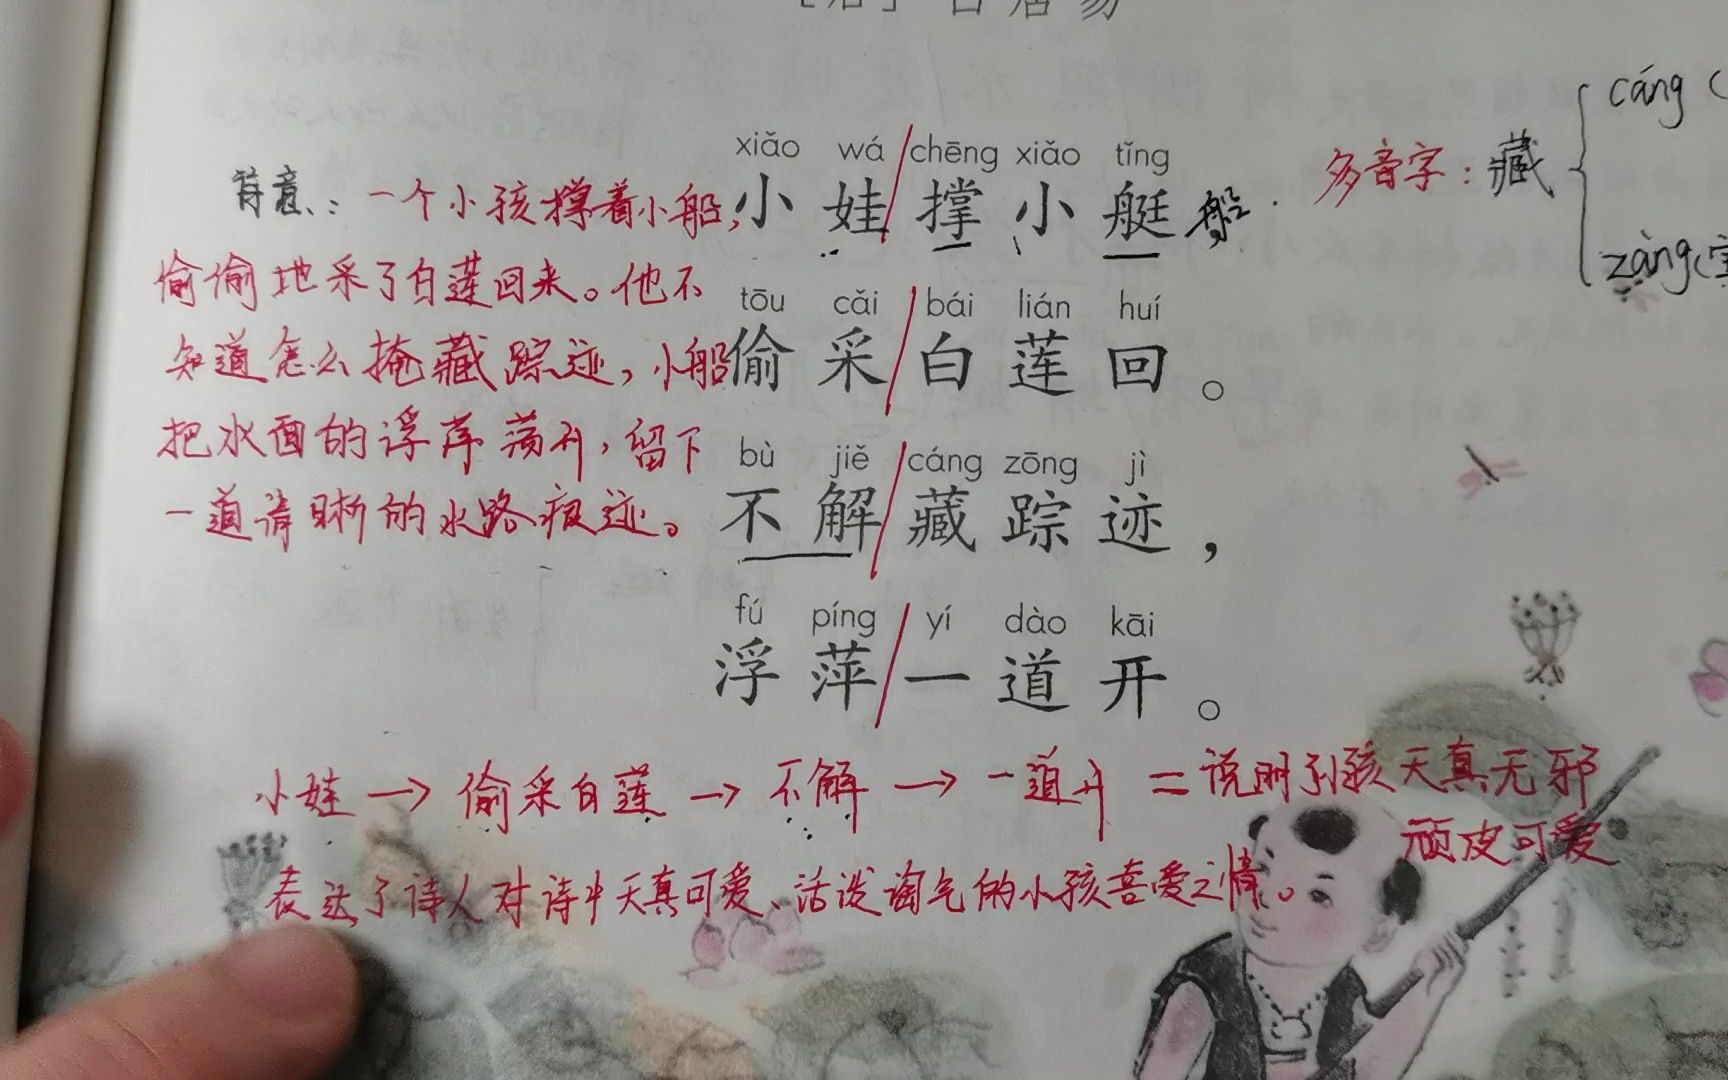 [唐] 白居易
xiǎo wá chēng xiǎo tǐng
小娃撑小艇 船
tōu cǎi bái lián huí
偷采白莲回。
bù jiě cáng zōng jì
不解藏踪迹，
fú píng yí dào kāi
浮萍一道开。
诗意：一个小孩撑着小船，
偷偷地采了白莲回来。他不
知道怎么掩藏踪迹，小船
把水面的浮萍荡开，留下
一道清晰的水路痕迹。
多音字：藏
cáng (
zàng(宝
小娃→偷采白莲→不解→一道开=说明小孩天真无邪
顽皮可爱
表达了诗人对诗中天真可爱、活泼淘气的小孩喜爱之情。